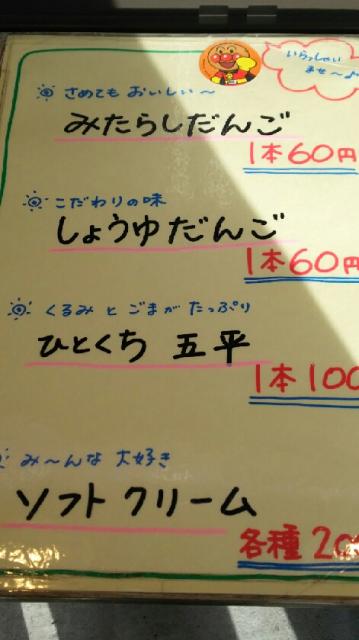 いらっしゃい
ませ～♪
さめても おいしい～
みたらしだんご
1本60円
こだわりの味
しょうゆだんご
1本60円
くるみとごまがたっぷり
ひとくち 五平
1本100
み～んな 大好き
ソフトクリーム
各種20